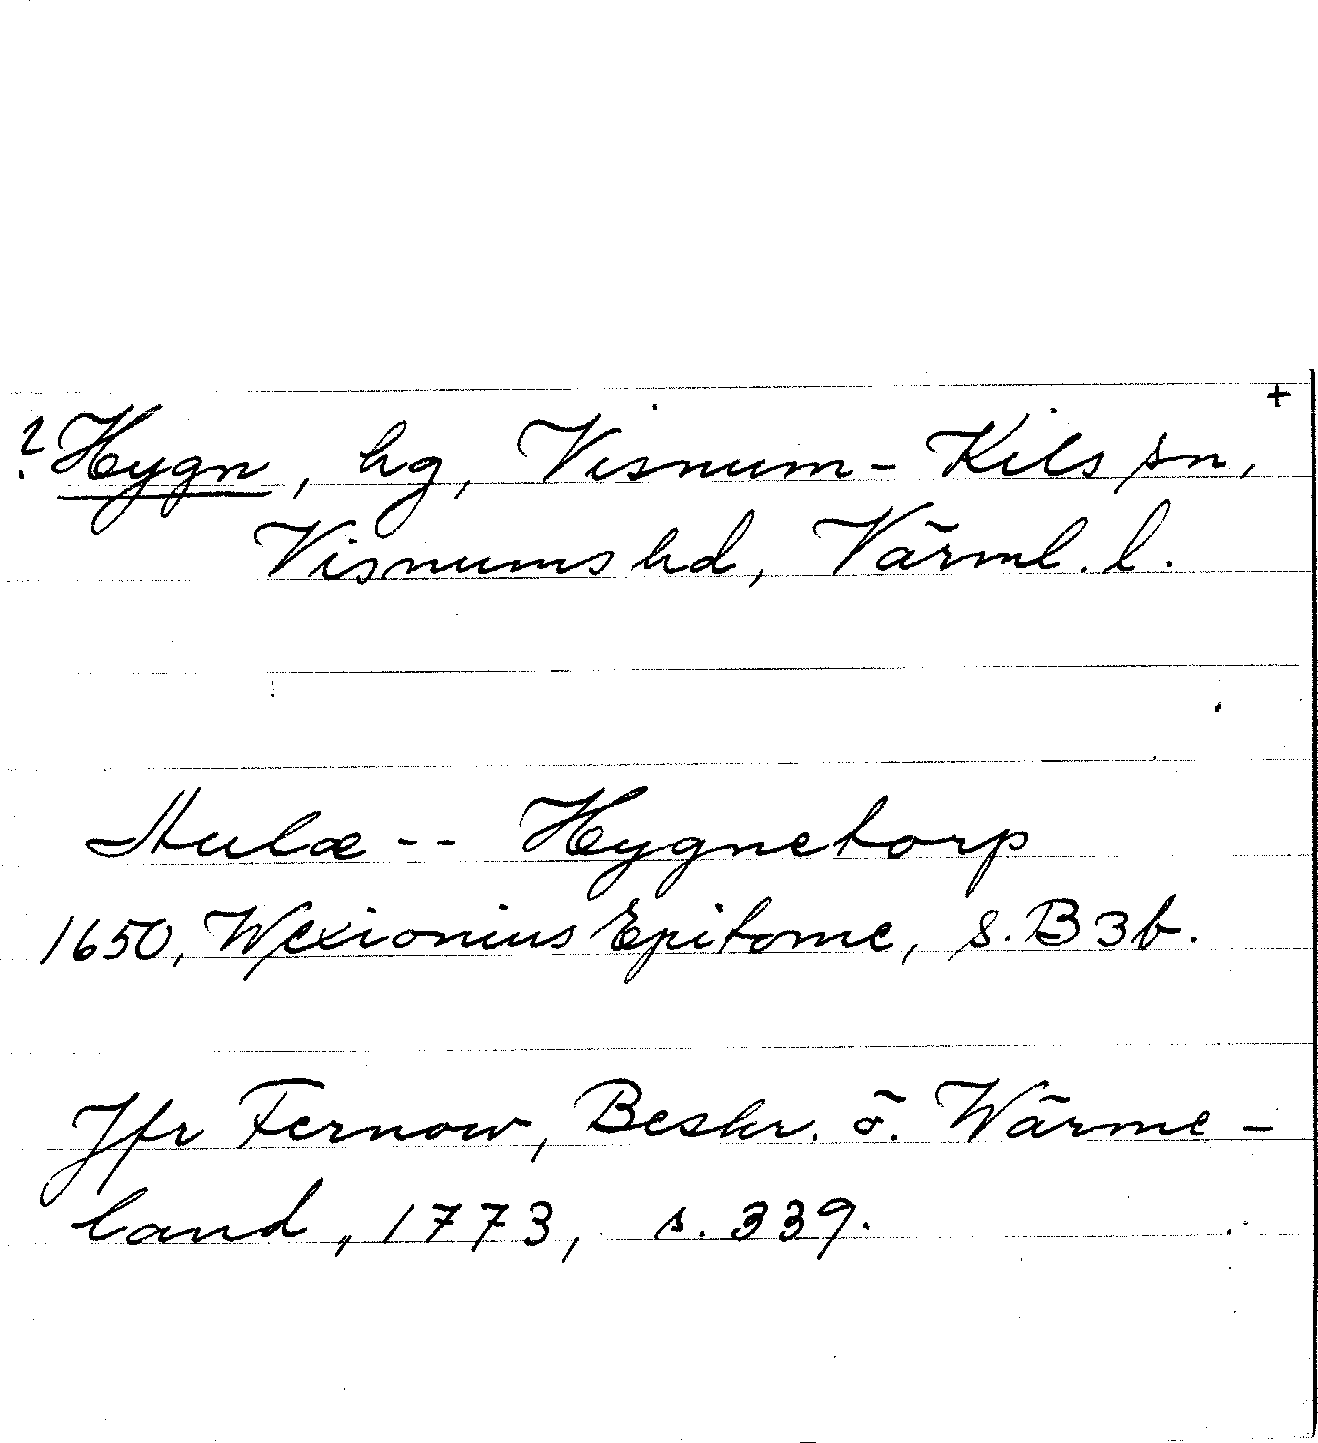 +
? Hygn, hg, Visnum-Kils sn,
Visnums hd, Värml. l.
Aulæ -- Hygnetorp
1650, Wexionius Epitome, s. B3b.
Jfr Fernow, Beskr. ö. Wärme-
land, 1773, s. 339.